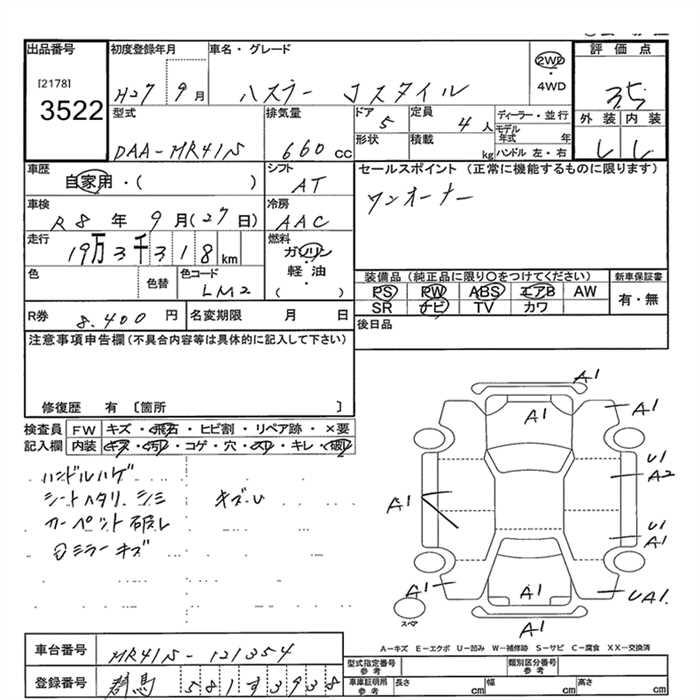 出品番号
[2178]
3522
初度登録年月
H27 9月
車名・グレード
ハスラー Jスタイル
2WD
・
4WD
評価点
3.5
型式
DAA-MR41S
排気量
660cc
ドア
5
形状
定員
4人
積載
kg
ディーラー・並行
モデル年式 年
ハンドル 左・右
外装 内装
車歴
自家用・( )
シフト
AT
車検
R8年 9月(27日)
冷房
AAC
走行
19万3千318km
燃料
ガソリン
・
軽油
( )
色
色替
色コード
LM2
R券
8,400円
名変期限 月 日
セールスポイント (正常に機能するものに限ります)
ワンオーナー
装備品(純正品に限り○をつけてください)
PS PW ABS エアB AW
SR ナビ TV カワ
新車保証書
有・無
後日品
注意事項申告欄(不具合内容等は具体的に記入して下さい)
修復歴 有〔箇所 〕
検査員記入欄
FW キズ・飛石・ヒビ割・リペア跡・×要
内装 キズ・汚れ・コゲ・穴・スレ・キレ・破れ
ハンドルハゲ
シートヘタリ、シミ キズU
カーペット破レ
ミラーキズ
A1
A1
A1
U1
A2
A1
U1
A1
A1
A1
UA1
A1
スペア
A-キズ E-エクボ U-凹み W-補修跡 S-サビ C-腐食 XX-交換済
車台番号
MR41S-121354
登録番号
群馬 581 す 3938
型式指定番号
参考
類別区分番号
参考
車庫証明用
参考
長さ cm
幅 cm
高さ cm